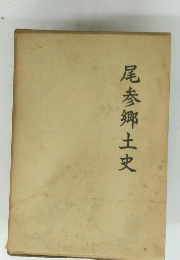 尾参郷土史